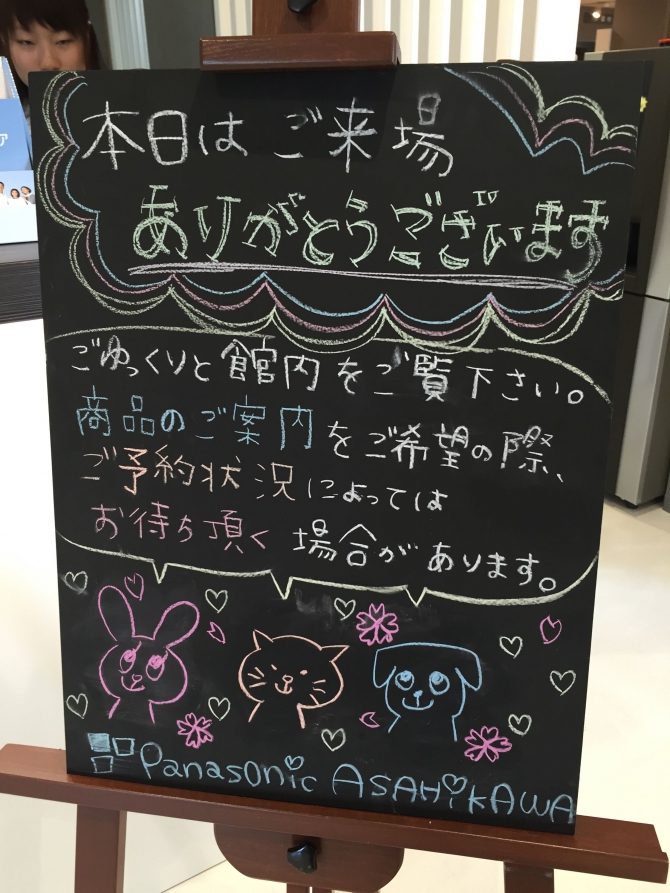 本日はご来場
ありがとうございます
ごゆっくりと館内をご覧下さい。
商品のご案内をご希望の際、
ご予約状況によっては
お待ち頂く場合があります。
Panasonic ASAHiKAWA